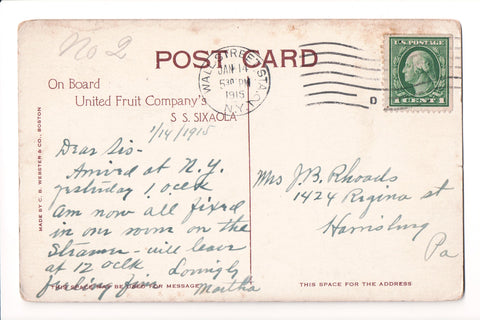 No 2
POST CARD
WALL STREET STA.
JAN 14
530 PM
1915
N.Y.
U.S. POSTAGE
1 CENT 1
D
On Board
United Fruit Company's
S. S. SIXAOLA
MADE BY C. B. WEBSTER & CO., BOSTON
1/14/1915
Dear Sis-
Arrived at N.Y.
yesterday 1 oclk
am now all fixed
in our room on the
Steamer - will leave
at 12 oclk Lovingly
feeling fine Martha
THIS SPACE MAY BE USED FOR MESSAGE
Mrs J.B. Rhoads
1424 Regina st
Harrisburg
Pa
THIS SPACE FOR THE ADDRESS